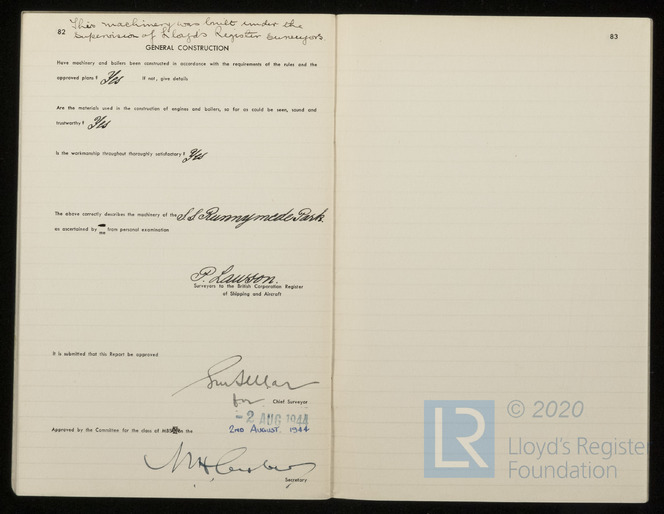 82
This machinery was built under the
supervision of Lloyd's Register Surveyors
GENERAL CONSTRUCTION
Have machinery and boilers been constructed in accordance with the requirements of the rules and the
approved plans? Yes If not, give details
Are the materials used in the construction of engines and boilers, so far as could be seen, sound and
trustworthy? Yes
Is the workmanship throughout thoroughly satisfactory? Yes
The above correctly describes the machinery of the S.S Runnymede Park.
as ascertained by me from personal examination
P. Lawson.
Surveyors to the British Corporation Register
of Shipping and Aircraft
It is submitted that this Report be approved
for Chief Surveyor
- 2 AUG 1944
Approved by the Committee for the class of on the 2ND AUGUST, 1944
Secretary
83
© 2020
LR
Lloyd's Register
Foundation